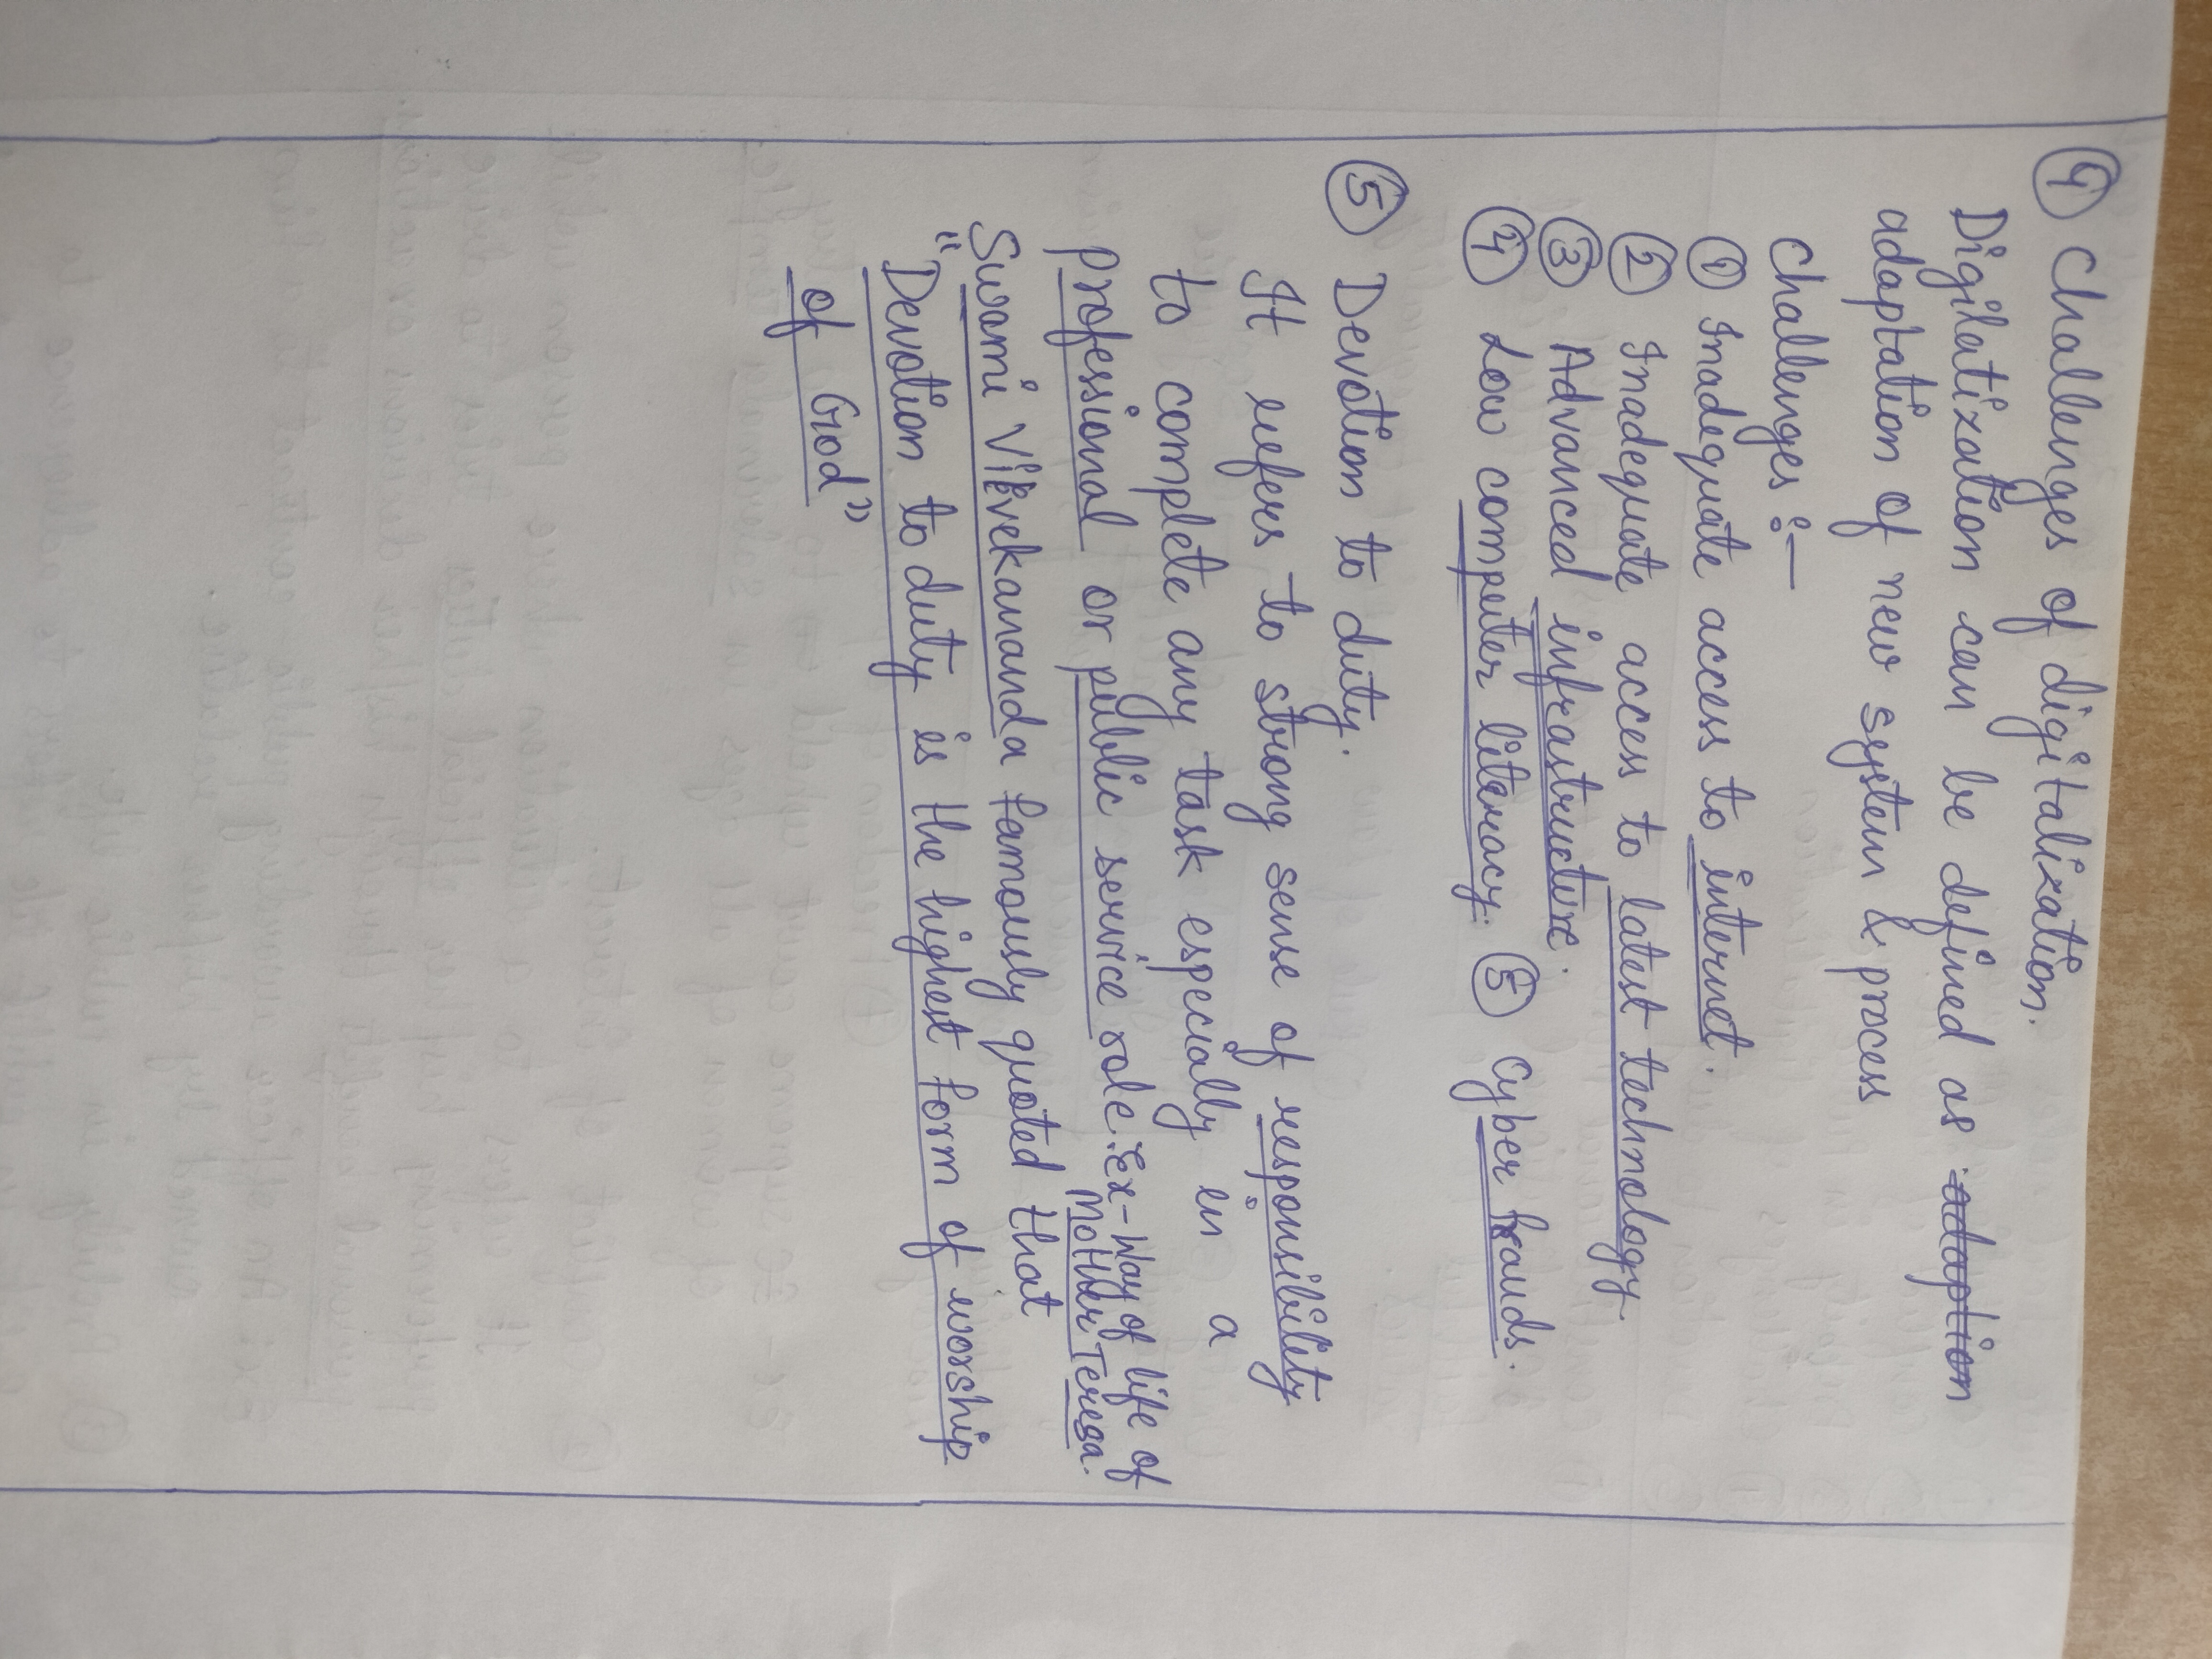 ④ Challenges of digitalization.
Digilatization can be defined as adaption
adaptation of new system & process
Challenges :-
① Inadequate access to internet.
② Inadequate access to latest technology.
③ Advanced infrastructure.
④ Low computer literacy. ⑤ Cyber frauds.
⑤ Devotion to duty.
It refers to strong sense of responsibility
to complete any task especially in a
professional or public service role. Ex- Way of life of
Mother Teresa.
Swami Vivekananda famously quoted that
"Devotion to duty is the highest form of worship
of God"